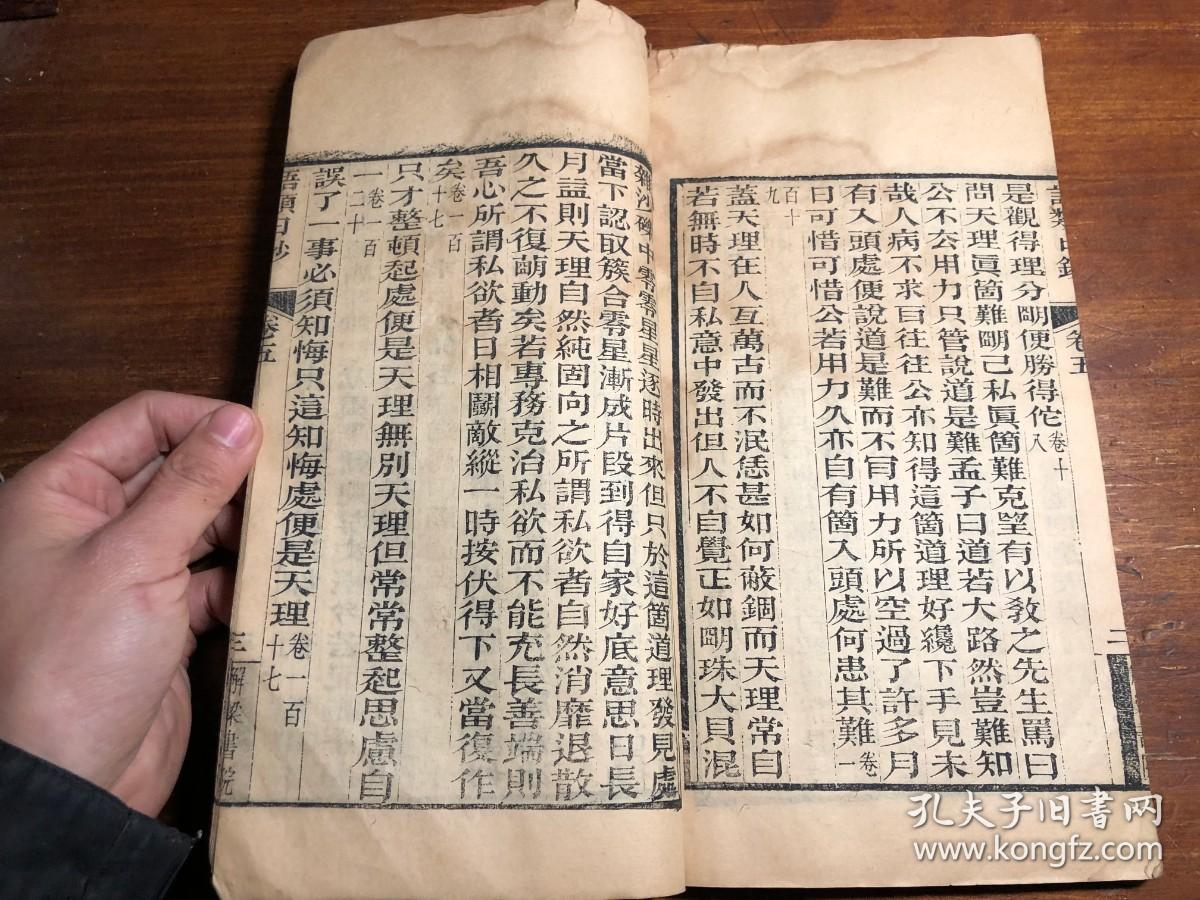 卷五
二
是觀得理分明便勝得佗卷十八
問天理眞箇難明己私眞箇難克望有以敎之先生罵曰
公不公用力只管說道是難孟子曰道若大路然豈難知
哉人病不求自往往公亦知得這箇道理好纔下手見未
有入頭處便說道是難而不肯用力所以空過了許多月
日可惜可惜公若用力久亦自有箇入頭處何患其難卷一
百十九
蓋天理在人亙萬古而不泯恁甚如何蔽錮而天理常自
若無時不自私意中發出但人不自覺正如明珠大貝混
雜沙礫中零零星星逐時出來但只於這箇道理發見處
當下認取簇合零星漸成片段到得自家好底意思日長
月益則天理自然純固向之所謂私欲者自然消靡退散
久之不復萌動矣若專務克治私欲而不能充長善端則
吾心所謂私欲者日相鬭敵縱一時按伏得下又當復作
矣卷一百十七
只才整頓起處便是天理無別天理但常常整起思慮自
一卷一百二十
誤了一事必須知悔只這知悔處便是天理卷一百十七
語類日抄
卷五
三
解梁書院
孔夫子旧书网
www.kongfz.com